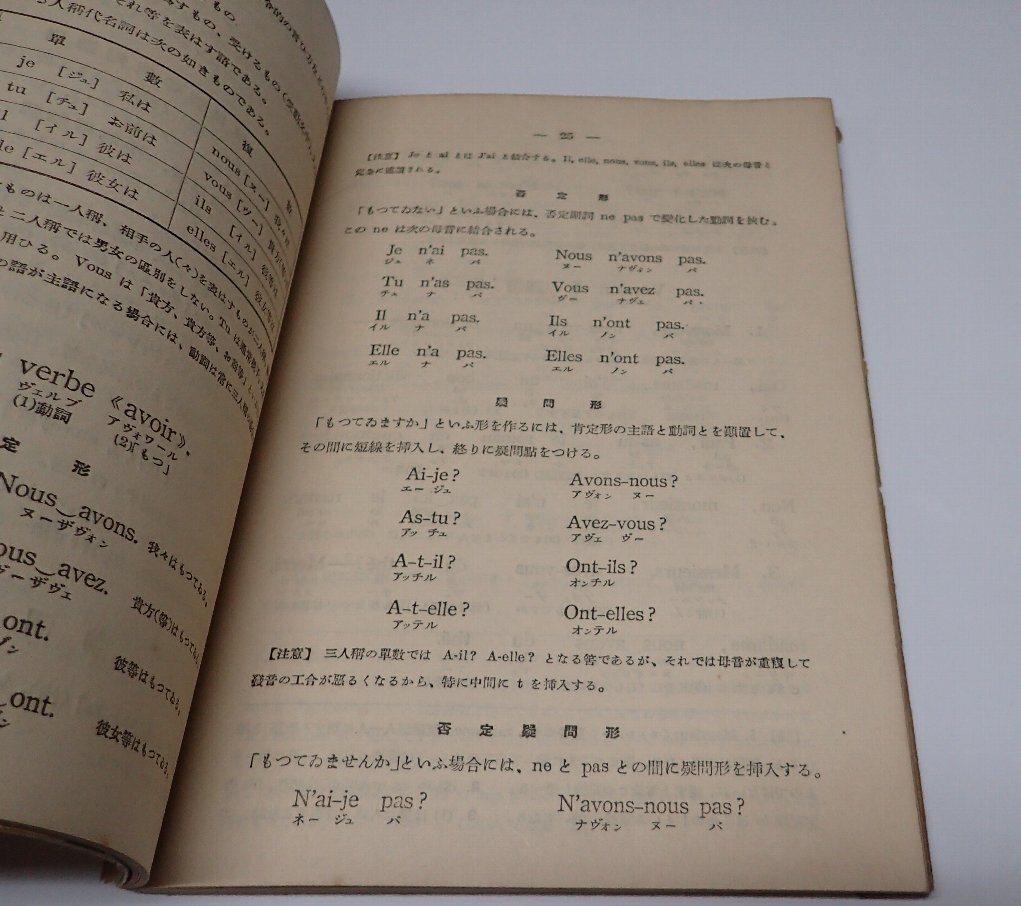 れ等を表はす語である。
人稱代名詞は次の如きものである。
單 數
複
je [ジュ] 私は
nous [ヌー]
tu [チュ] お前は
vous [ヴー]
[イル] 彼は
ils [イル]
[エル] 彼女は
elles [エル]
ものは一人稱、相手の人(々)を表はすものが二人稱、
二人稱では男女の區別をしない。Tu は
用ひる。Vous は「貴方、貴方等、お前等」
の語が主語になる場合には、動詞は常に三人稱
verbe 《avoir》
ヴェルブ アヴォワール
(1)動詞 (2)「もつ」
定 形
Nous‿avons. 我々はもつてゐる。
ヌーザヴォン
ous‿avez. 貴方(等)はもつてゐる。
ヴーザヴェ
ont. 彼等はもつてゐる。
ont. 彼女等はもつてゐる。
— 25 —
【注意】 Je と ai とは J'ai と結合する。Il, elle, nous, vous, ils, elles は次の母音と
完全に連讀される。
否 定 形
「もつてゐない」といふ場合には、否定副詞 ne pas で變化した動詞を挾む。
この ne は次の母音に結合される。
Je n'ai pas. Nous n'avons pas.
ジュ ネ パ ヌー ナヴォン パ
Tu n'as pas. Vous n'avez pas.
チュ ナ パ ヴー ナヴェ パ
Il n'a pas. Ils n'ont pas.
イル ナ パ イル ノン パ
Elle n'a pas. Elles n'ont pas.
エル ナ パ エル ノン パ
疑 問 形
「もつてゐますか」といふ形を作るには、肯定形の主語と動詞とを顚置して、
その間に短線を挿入し、終りに疑問點をつける。
Ai-je? Avons-nous?
エー ジュ アヴォン ヌー
As-tu? Avez-vous?
アッ チュ アヴェ ヴー
A-t-il? Ont-ils?
アッチル オンチル
A-t-elle? Ont-elles?
アッテル オンテル
【注意】 三人稱の單數では A-il? A-elle? となる筈であるが、それでは母音が重複して
發音の工合が惡るくなるから、特に中間に t を挿入する。
否 定 疑 問 形
「もつてゐませんか」といふ場合には、ne と pas との間に疑問形を挿入する。
N'ai-je pas? N'avons-nous pas?
ネー ジュ パ ナヴォン ヌー パ